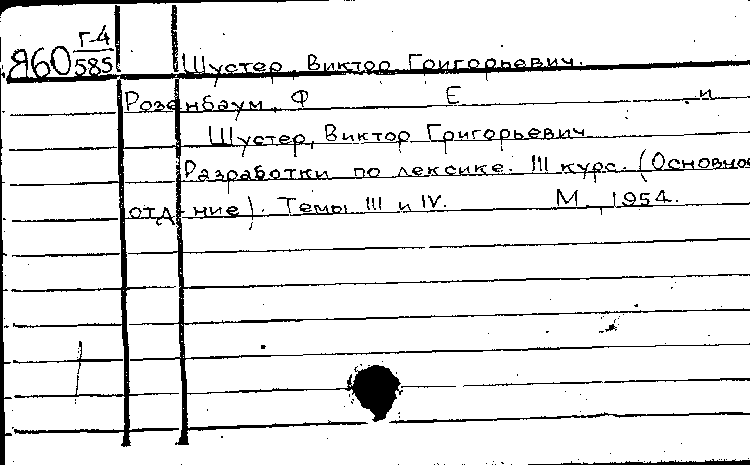 Я60 Г-4/585 Шустер, Виктор Григорьевич.
Розенбаум, Ф Е и
Шустер, Виктор Григорьевич
Разработки по лексике. III курс. (Основное
отд-ние). Темы III и IV. М., 1954.